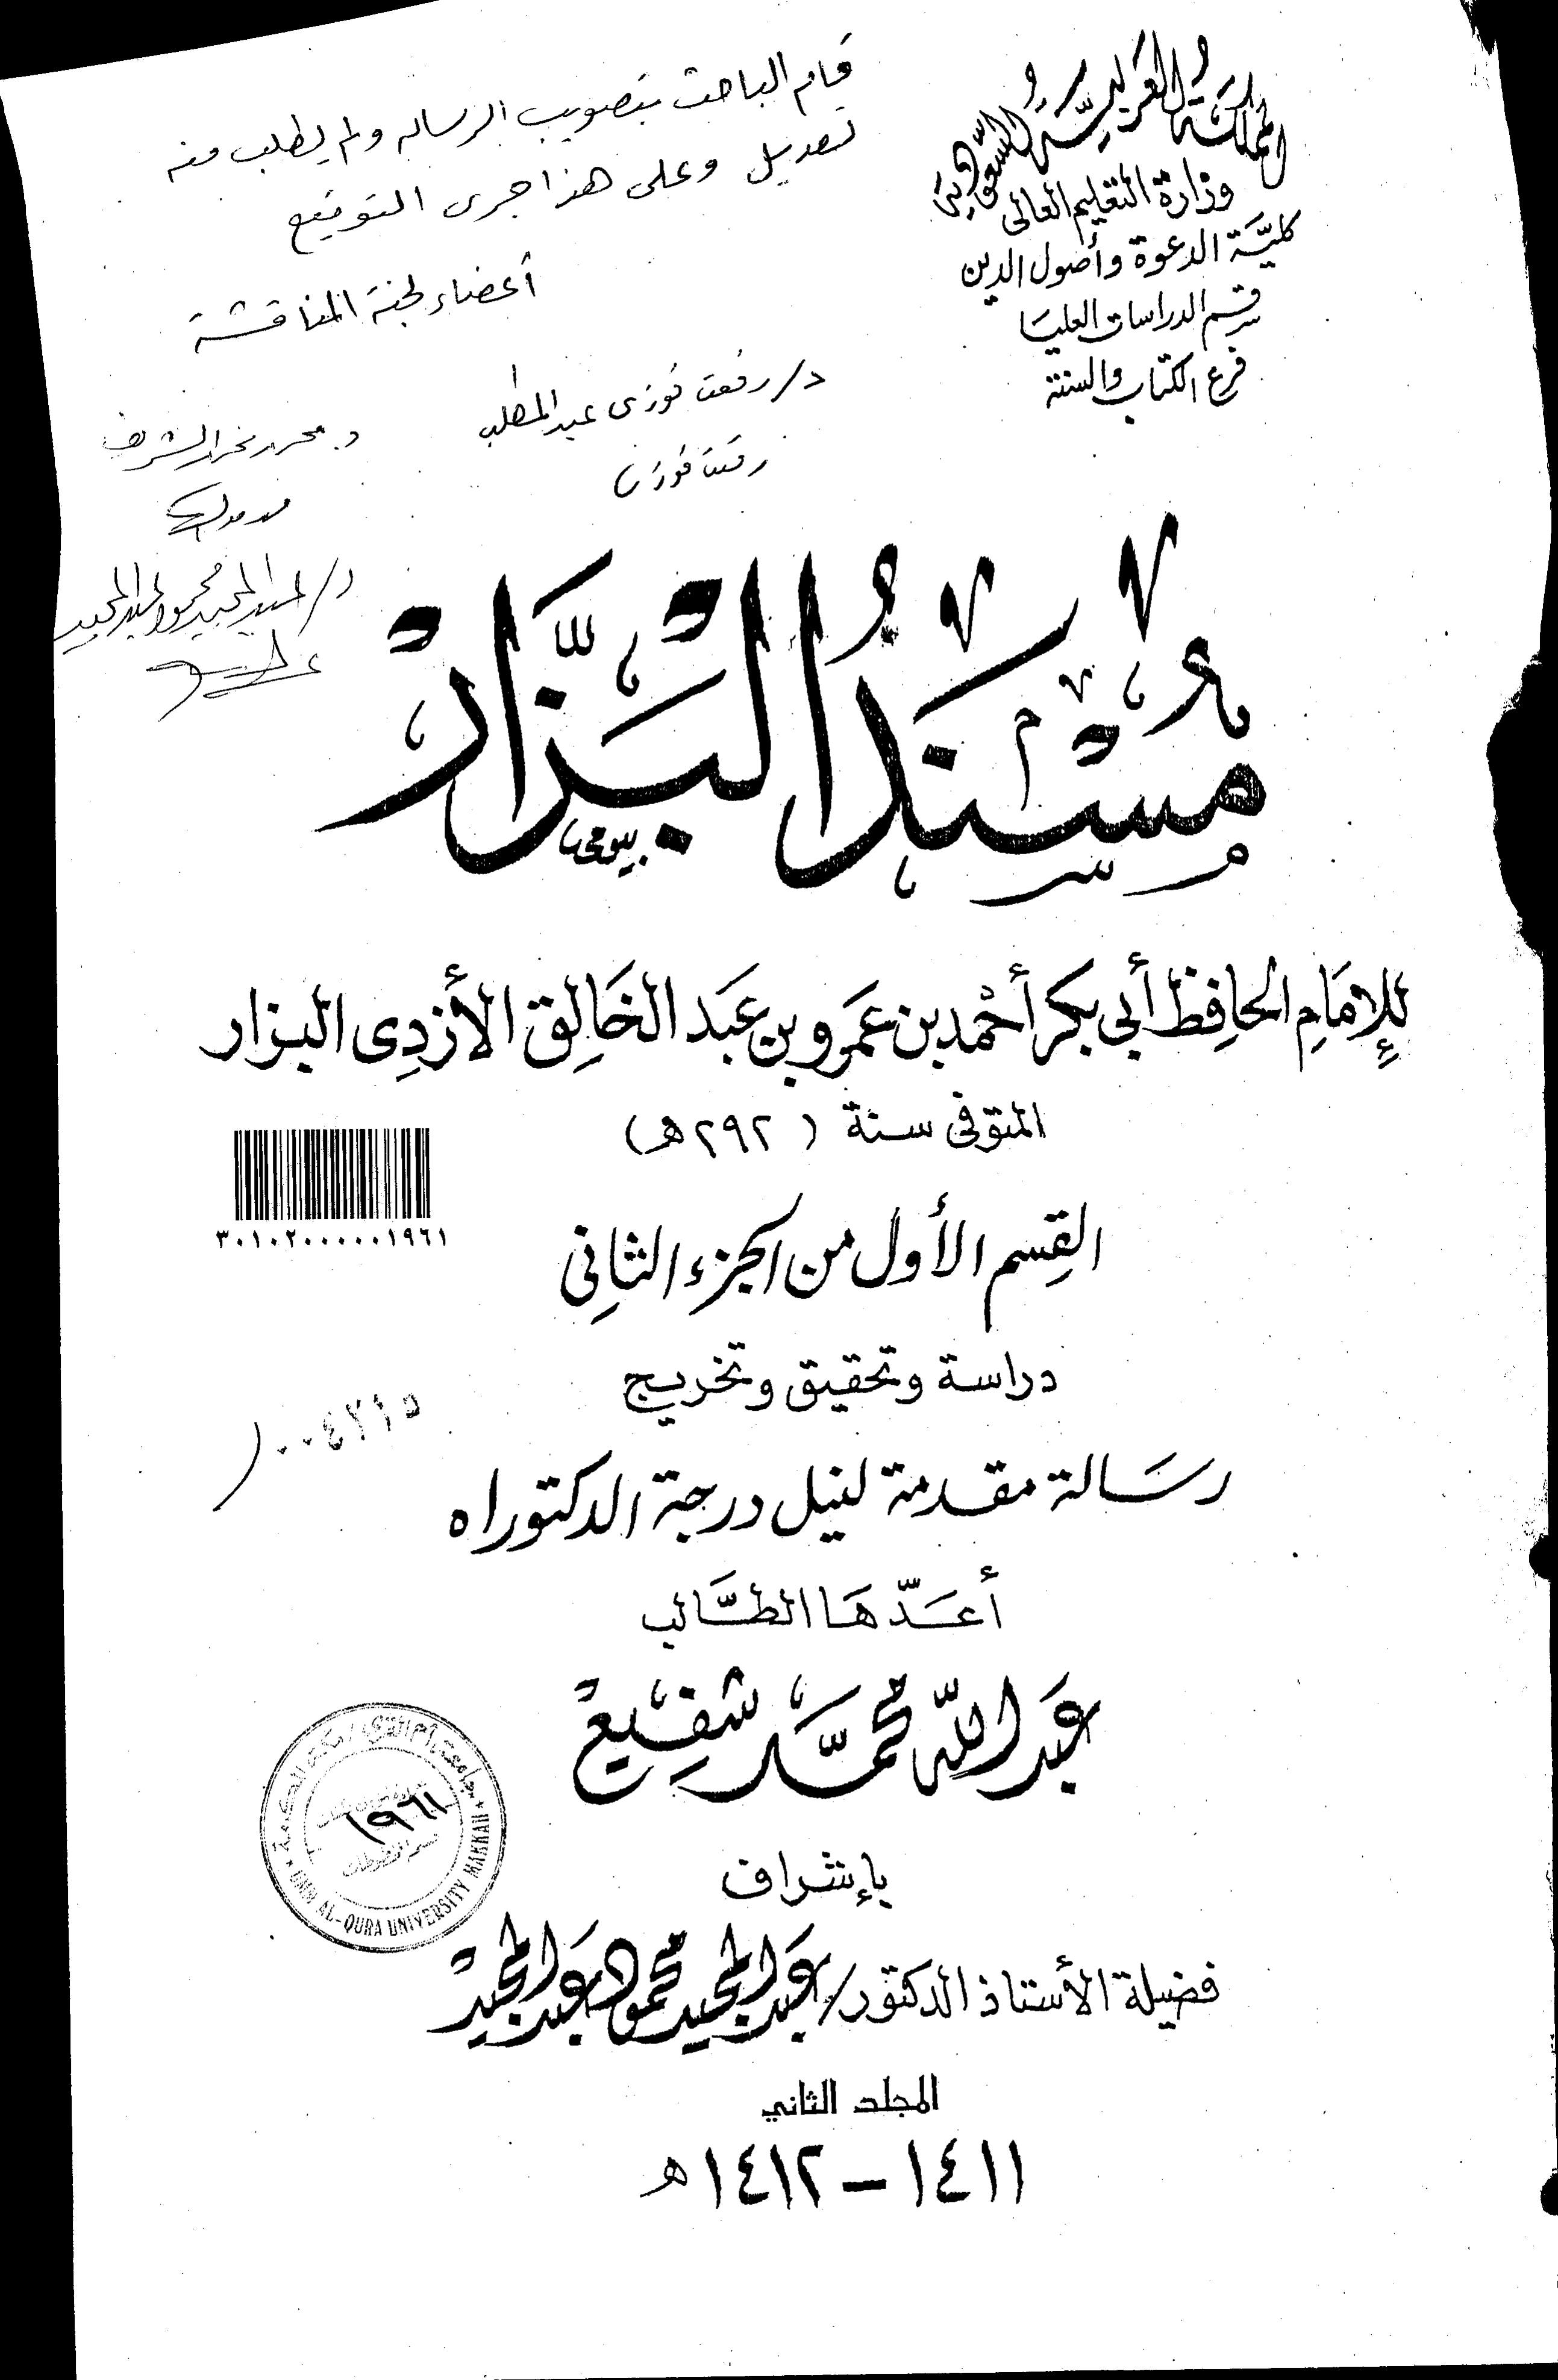 المملكة العربية السعودية
وزارة التعليم العالى
كلية الدعوة وأصول الدين
قسم الدراسات العليا
فرع الكتاب والسنة
قام الباحث بتصويب الرساله ولم يطلب منه
تعديل وعلى هذا جرى التوقيع
أعضاء لجنة المناقشة
د/ رفعت فوزى عبد المطلب
رفعت فوزى
د. محمد الشريف
د/ عبد المجيد محمود عبد المجيد
مُسْنَدُ البَزَّارْ
بيومى
لِلإِمَامِ الحافِظ أبي بكر أحْمد بن عَمَرو بن عَبَد الخَالِق الأزدِى البزار
المتوفى سنة (٢٩٢ هـ)
٣٠١٠٢٠٠٠٠٠١٩٦١
القِسم الأول من الجزء الثانِى
دراسة وتحقيق وتخريج
٠٠٤٢١٥
رسَالة مقدمة لنيل درجة الدكتوراه
أعَدّهَا الطَّالب
عَبد اللّه محمَّد شفِيعْ
جامعة أم القرى مكة المكرمة
١٩٦١
قسم المخطوطات
UMM AL-QURA UNIVERSITY MAKKAH
بإشراف
فضيلة الأستاذ الدكتور/ عَبد المجيد محمود عَبد المجيدْ
المجلد الثاني
١٤١١ – ١٤١٢ هـ